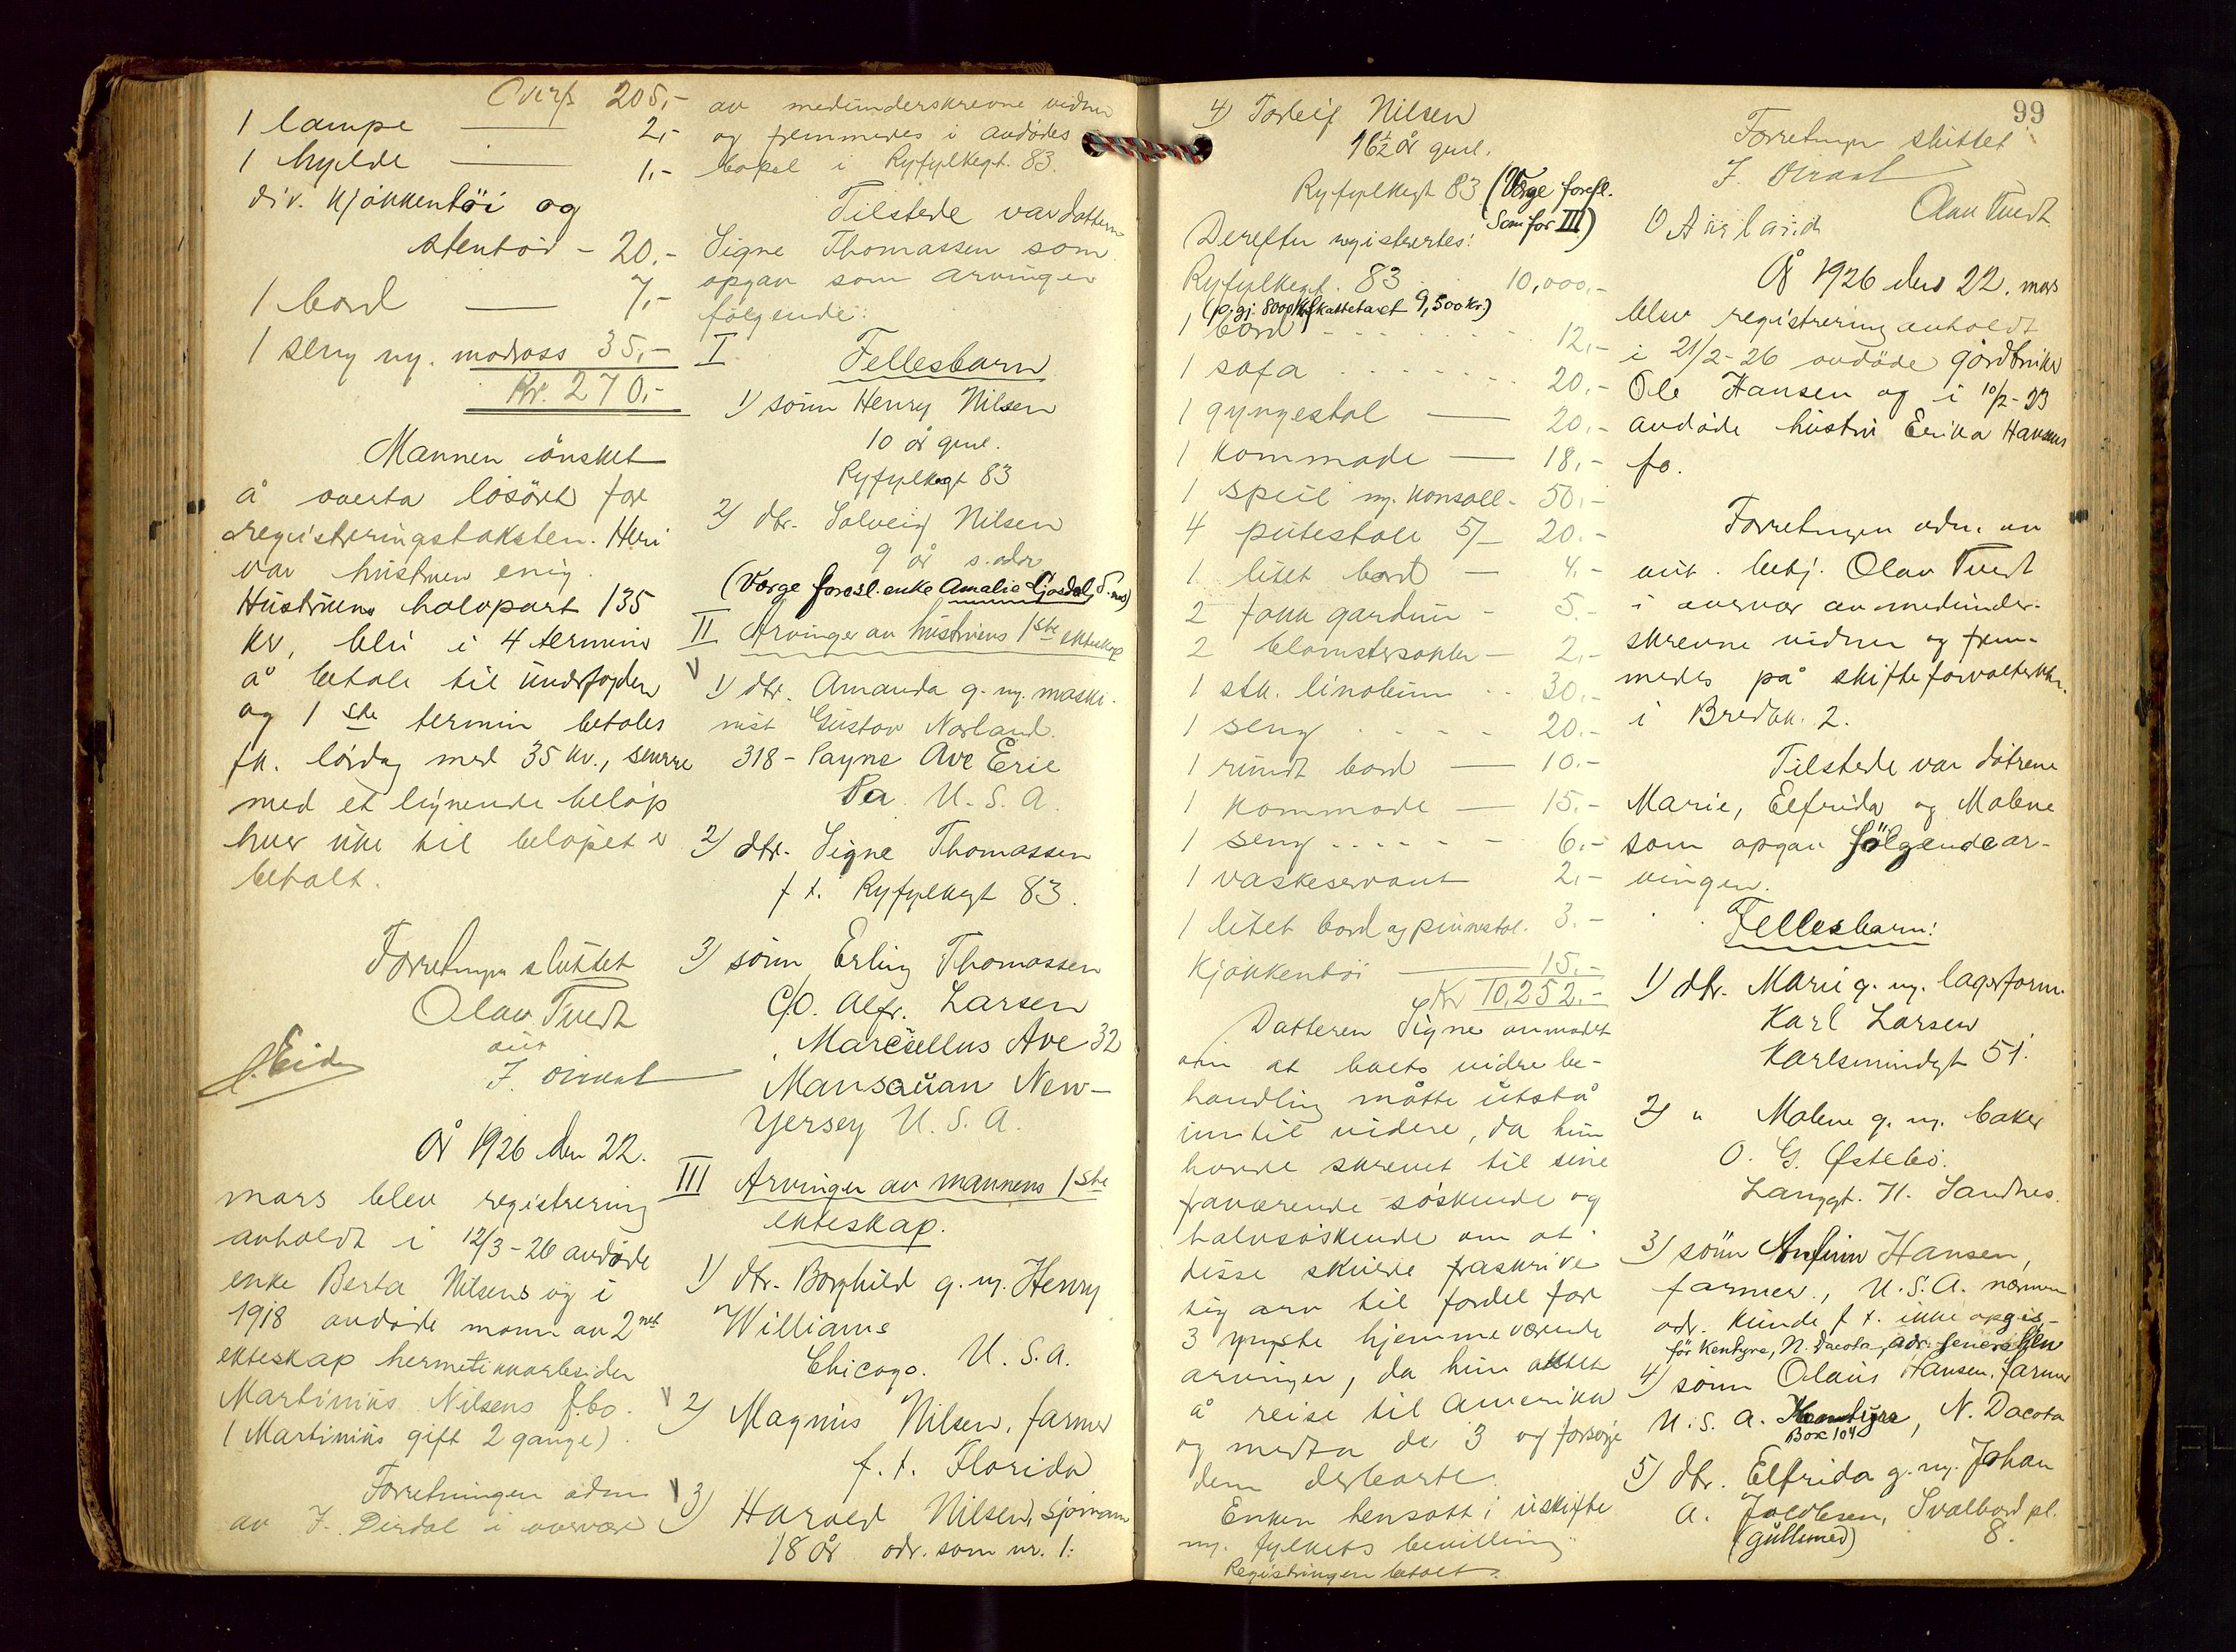 Overf. 205,-
1 lampe — 2,-
1 hylde — 1,-
div. kjøkkentöi og
stentöi - 20.-
1 bord — 7,-
1 seng m. madrass 35,-
Kr. 270,-
Mannen önsket
å overta lösöret for
registreringstaksten. Heri
var hustruen enig.
Hustruens halvpart 135
kr, blir i 4 terminer
å betale til underfogden
og 1ste termin betales
fk. lördag med 35 kr., senere
med et lignende belöp
hver uke til belöpet er
betalt.
Forretningen sluttet
Olav Tvedt
aut
J. Dirdal
J. Eide
År 1926 den 22.
mars blev registrering
avholdt i 12/3-26 avdöde
enke Berta Nilsens og i
1918 avdöde mann av 2net
ekteskap hermetikkarbeider
Martinius Nilsens f.bo.
(Martinius gift 2 gange).
Forretningen adm.
av J. Dirdal i overvær
av medunderskrevne vidner
og fremmedes i avdödes
bopel i Ryfylkegt. 83.
Tilstede var datteren
Signe Thomassen som
opgav som arvinger
fölgende:
I Fellesbarn
1) sönn Henry Nilsen
10 år gml.
Ryfylkegt 83
2) dtr. Solveig Nilsen
9 år s. adr
(Værge foresl. enke Amalie Gjosdal, s.)
II Arvinger av hustruens 1ste ekteskap
1) dtr. Amanda g. m. maski-
nist Gustav Norland.
318 - Payne Ave Erie
Pa. U. S. A.
2) dtr. Signe Thomassen
f. t. Ryfylkegt 83.
3) sönn Erling Thomassen
C/O. Alfr. Larsen
Marcellus Ave 32
Mansauan New-
Yersey U. S. A.
III Arvinger av mannens 1ste
ekteskap.
1) dtr. Borghild g. m. Henry
Williams
Chicago. U. S. A.
2) Magnus Nilsen, farmer
f. t. Florida
3) Harald Nilsen, sjömann
18 år adr. som nr. 1.
99
4) Torleif Nilsen
16½ år gml.
Ryfylkegt 83 (Værge foresl.
som for III)
Derefter registrertes:
Ryfylkegt. 83 . . 10,000,-
(p. gj. 8000 kr skattetakt 9,500 kr.)
1 bord - - - - 12,-
1 sofa . . . . . 20,-
1 gyngestol — 20,-
1 kommode — 18,-
1 speil m. konsoll - 50,-
4 putestole 5/- 20.-
1 litet bord — 4,-
2 fakk gardiner - 5.-
2 blomstersokler - 2,-
1 stk. linoleum . . 30,-
1 seng . - - - 20.-
1 rundt bord — 10.-
1 kommode — 15.-
1 seng . . . . - - 6.-
1 vaskeservant 2,-
1 litet bord og pinnestol. 3.-
Kjökkentöi — 15.-
Kr 10,252.-
Datteren Signe anmodet
om at boets videre be-
handling måtte utstå
inntil videre, da hun
havde skrevet til sine
fraværende söskende og
halvsöskende om at
disse skulde fraskrive
sig arv til fordel for
3 yngste hjemmeværende
arvinger, da hun aktet
å reise til Amerika
og medta de 3 og forsörge
dem derborte.
Enken hensatt i uskifte
m. fylkets bevilling
Registringen betalt.
Forretningen sluttet
J. Dirdal
Olav Tvedt
O Aarland
År 1926 den 22. mars
blev registrering avholdt
i 21/2-26 avdöde gårdbruker
Ole Hansen og i 10/2-23
avdöde hustru Erika Hansens
fo.
Forretningen adm. av
aut. betj. Olav Tvedt
i overvær av medunder-
skrevne vidner og frem-
medes på skifteforvalterkkr.
i Bredbk. 2.
Tilstede var dötrene
Marie, Elfrida og Malene
som opgav fölgende ar-
vinger.
Fellesbarn:
1) dtr. Marie g. m. lagerform.
Karl Larsen
Karlsmindegt 51.
2) " Malene g. m. baker
O. G. Østebö.
Langgt. 71. Sandnes.
3) sönn Anfinn Hansen,
farmer., U.S.A. nærmere
adr. kunde f. t. ikke opgis -
for Kentyre, N. Dacota,
4) sönn Olaus Hansen, farmer
U. S. A. Kentyre, N. Dacota
Box 104
5) dtr. Elfrida g. m. Johan
A. Jaldesen, Svalbard pl.
(gullsmed) 8.